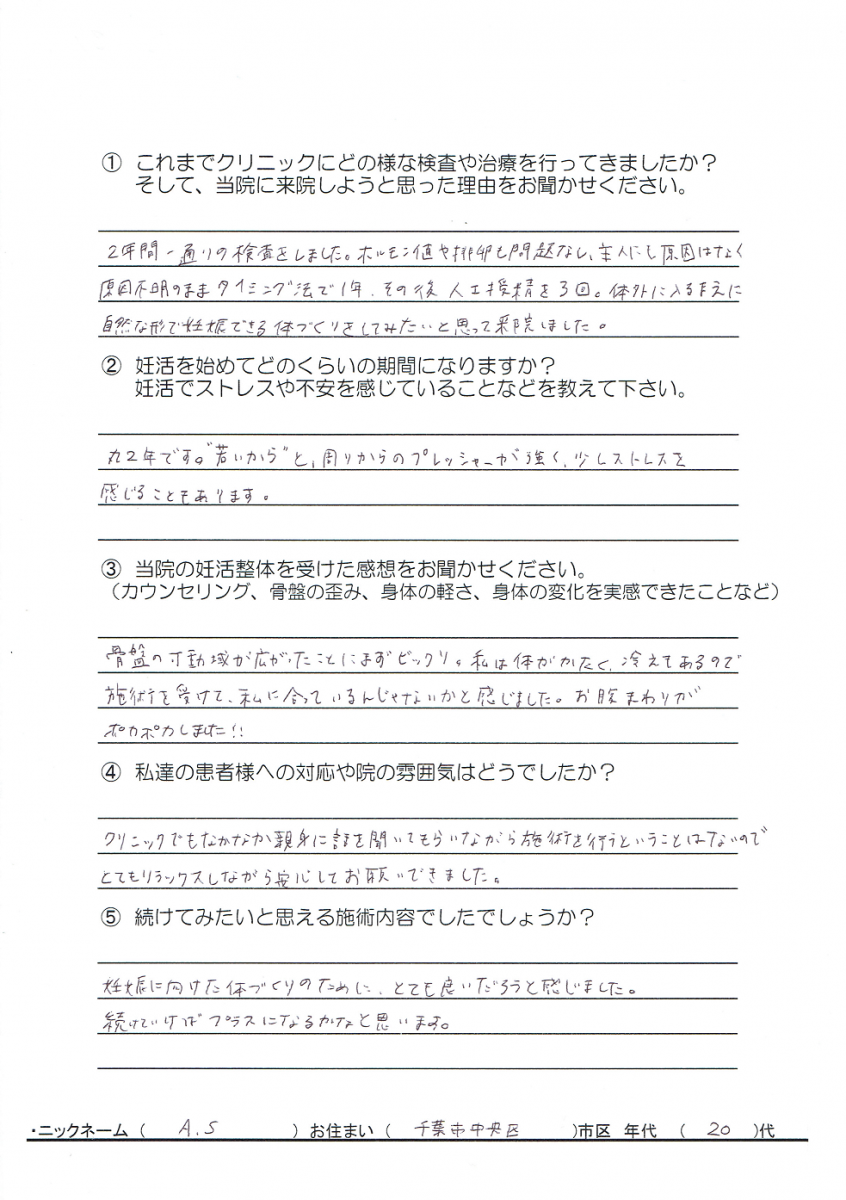 ① これまでクリニックにどの様な検査や治療を行ってきましたか？
そして、当院に来院しようと思った理由をお聞かせください。
2年間一通りの検査をしました。ホルモン値や排卵も問題なし、主人にも原因はなく
原因不明のままタイミング法で1年、その後人工授精を3回。体外に入るまえに
自然な形で妊娠できる体づくりをしてみたいと思って来院しました。
② 妊活を始めてどのくらいの期間になりますか？
妊活でストレスや不安を感じていることなどを教えて下さい。
丸2年です。"若いから"と、周りからのプレッシャーが強く、少しストレスを
感じることもあります。
③ 当院の妊活整体を受けた感想をお聞かせください。
（カウンセリング、骨盤の歪み、身体の軽さ、身体の変化を実感できたことなど）
骨盤の可動域が広がったことにまずビックリ。私は体がかたく、冷えてあるので
施術を受けて、私に合っているんじゃないかと感じました。お腹まわりが
ポカポカしました!!
④ 私達の患者様への対応や院の雰囲気はどうでしたか？
クリニックでもなかなか親身に話を聞いてもらいながら施術を行うということはないので
とてもリラックスしながら安心してお願いできました。
⑤ 続けてみたいと思える施術内容でしたでしょうか？
妊娠に向けた体づくりのために、とても良いだろうと感じました。
続けていけばプラスになるかなと思います。
・ニックネーム（ A.S ）お住まい（ 千葉市中央区 ）市区 年代（ 20 ）代